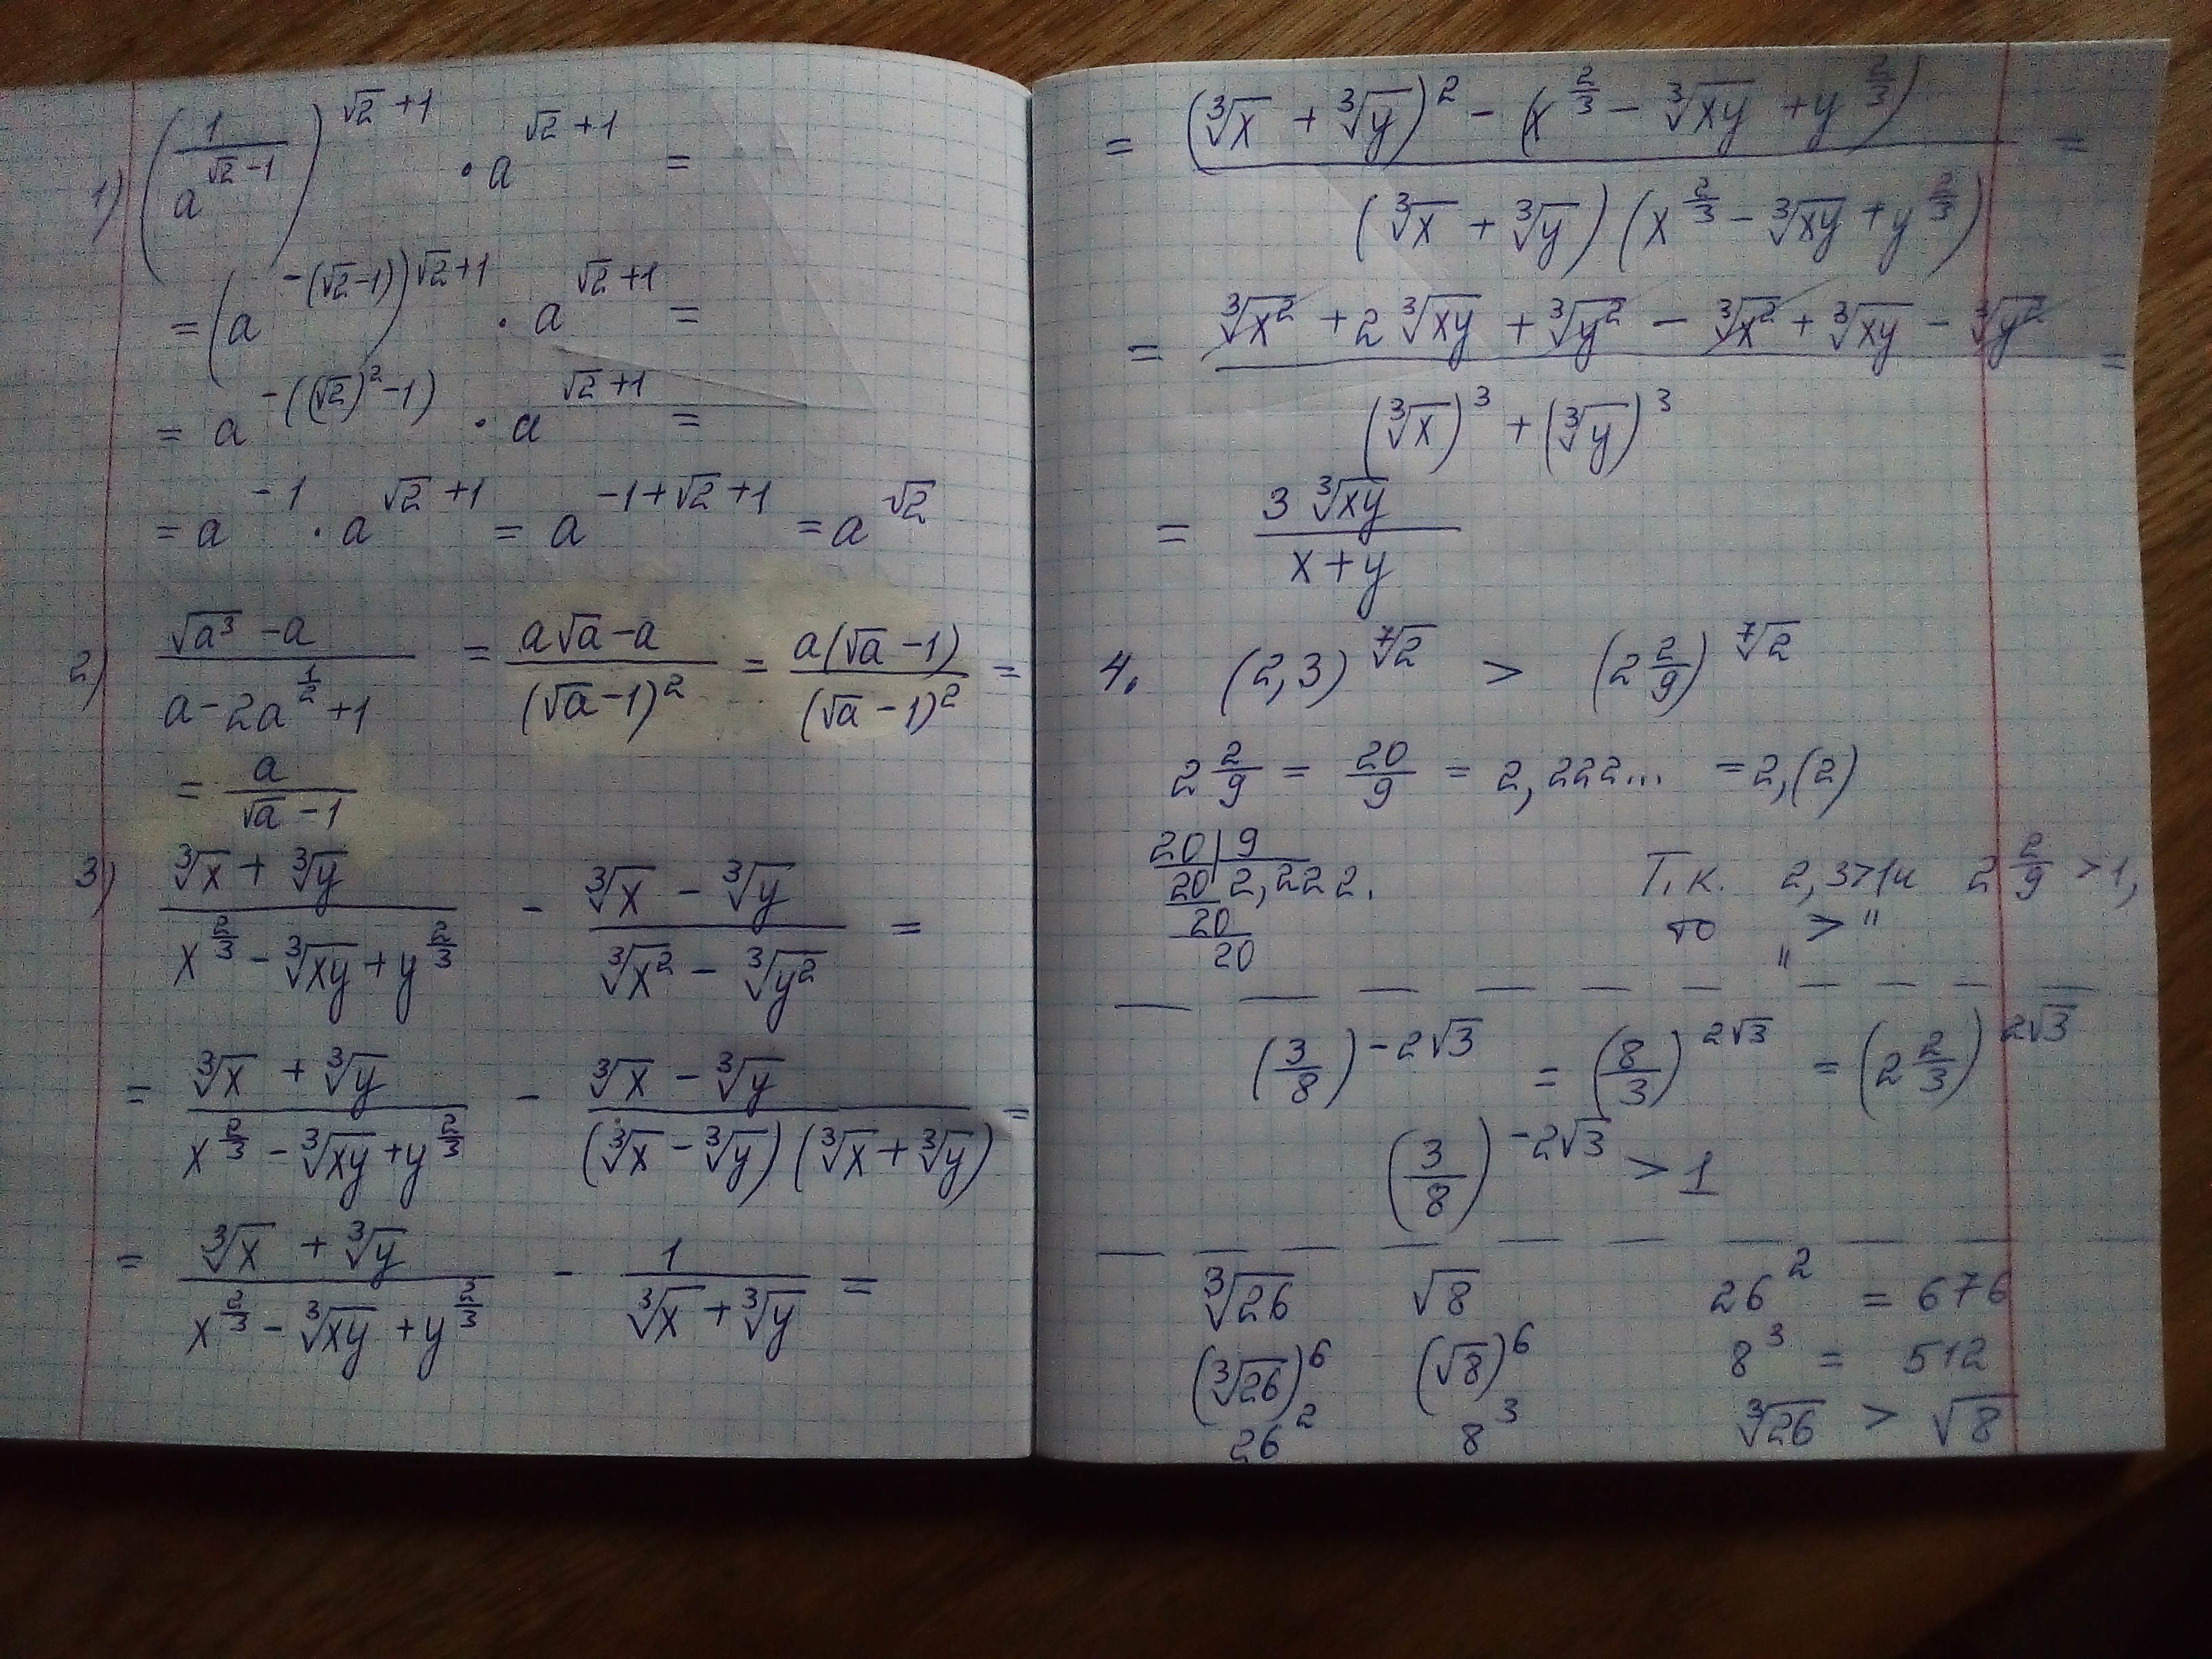 1) (1/a^(√2-1))^(√2+1) · a^(√2+1) =
= (a^(-(√2-1)))^(√2+1) · a^(√2+1) =
= a^(-((√2)²-1)) · a^(√2+1) =
= a^(-1) · a^(√2+1) = a^(-1+√2+1) = a^(√2)
2) (√a³ - a)/(a - 2a^(1/2) + 1) = (a√a - a)/((√a - 1)²) = (a(√a - 1))/((√a - 1)²) =
= a/(√a - 1)
3) (∛x + ∛y)/(x^(2/3) - ∛xy + y^(2/3)) - (∛x - ∛y)/(∛x² - ∛y²) =
= (∛x + ∛y)/(x^(2/3) - ∛xy + y^(2/3)) - (∛x - ∛y)/((∛x - ∛y)(∛x + ∛y)) =
= (∛x + ∛y)/(x^(2/3) - ∛xy + y^(2/3)) - 1/(∛x + ∛y) =
= ((∛x + ∛y)² - (x^(2/3) - ∛xy + y^(2/3)))/((∛x + ∛y)(x^(2/3) - ∛xy + y^(2/3))) =
= (∛x² + 2∛xy + ∛y² - ∛x² + ∛xy - ∛y²)/((∛x)³ + (∛y)³) =
= 3∛xy/(x + y)
4. (2,3)^(⁷√2) > (2 2/9)^(⁷√2)
2 2/9 = 20/9 = 2,222... = 2,(2)
20 | 9
20 2,222.
20
20
Т.к. 2,3>1 и 2 2/9 >1,
то „ > "
(3/8)^(-2√3) = (8/3)^(2√3) = (2 2/3)^(2√3)
(3/8)^(-2√3) > 1
∛26 √8 26² = 676
(∛26)⁶ (√8)⁶ 8³ = 512
26² 8³ ∛26 > √8